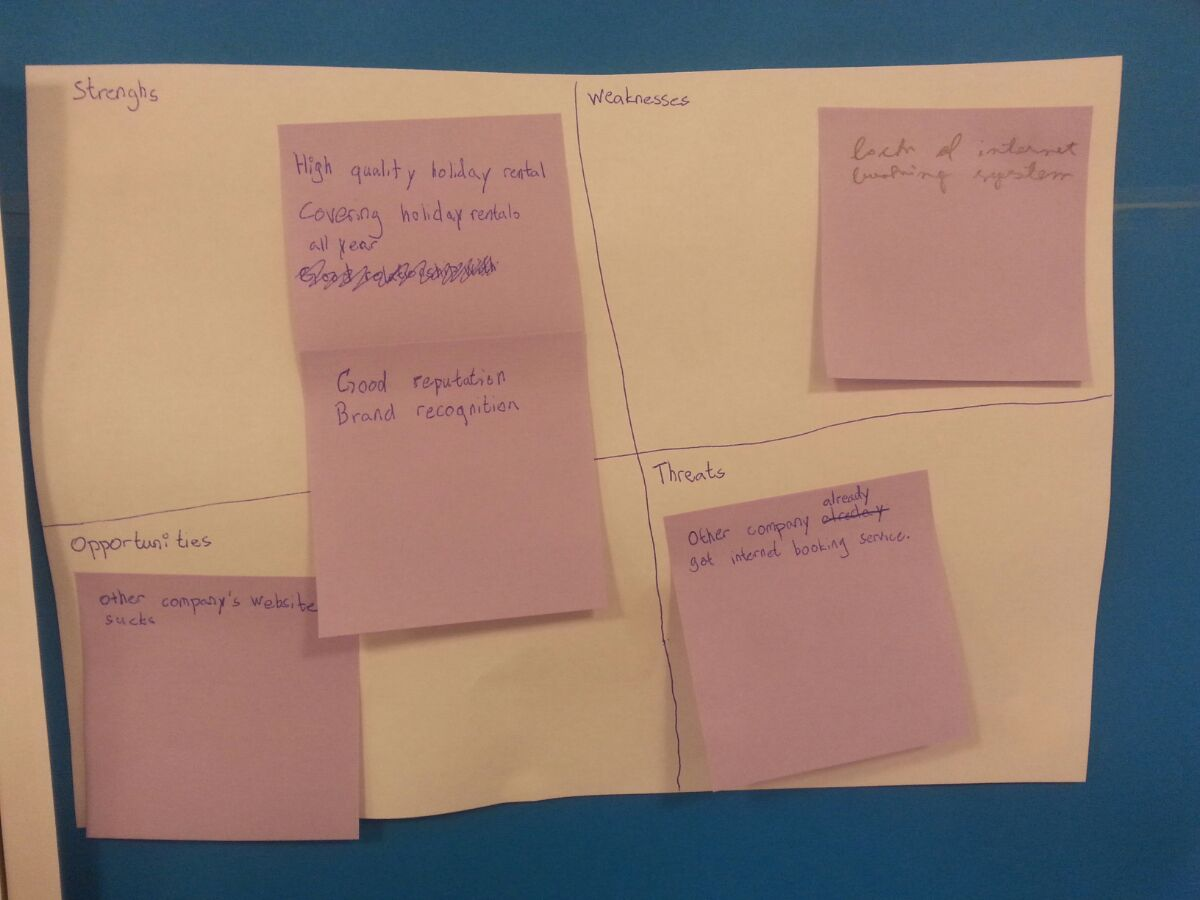 Strenghs
High quality holiday rental
Covering holiday rentals
all year
Good reputation
Brand recognition
Weaknesses
lack of internet
booking system
Opportunities
other company's website
sucks
Threats
already
Other company alreday
got internet booking service.